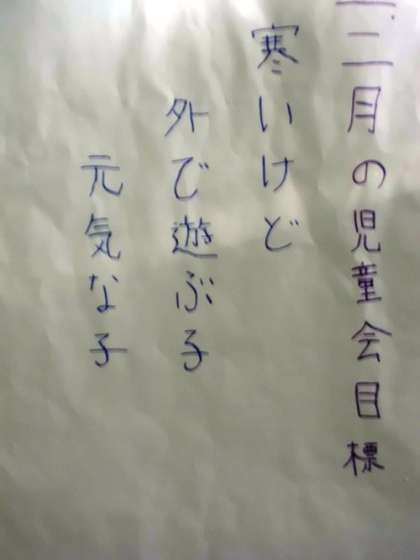 一二月の児童会目標
寒いけど
外で遊ぶ子
元気な子